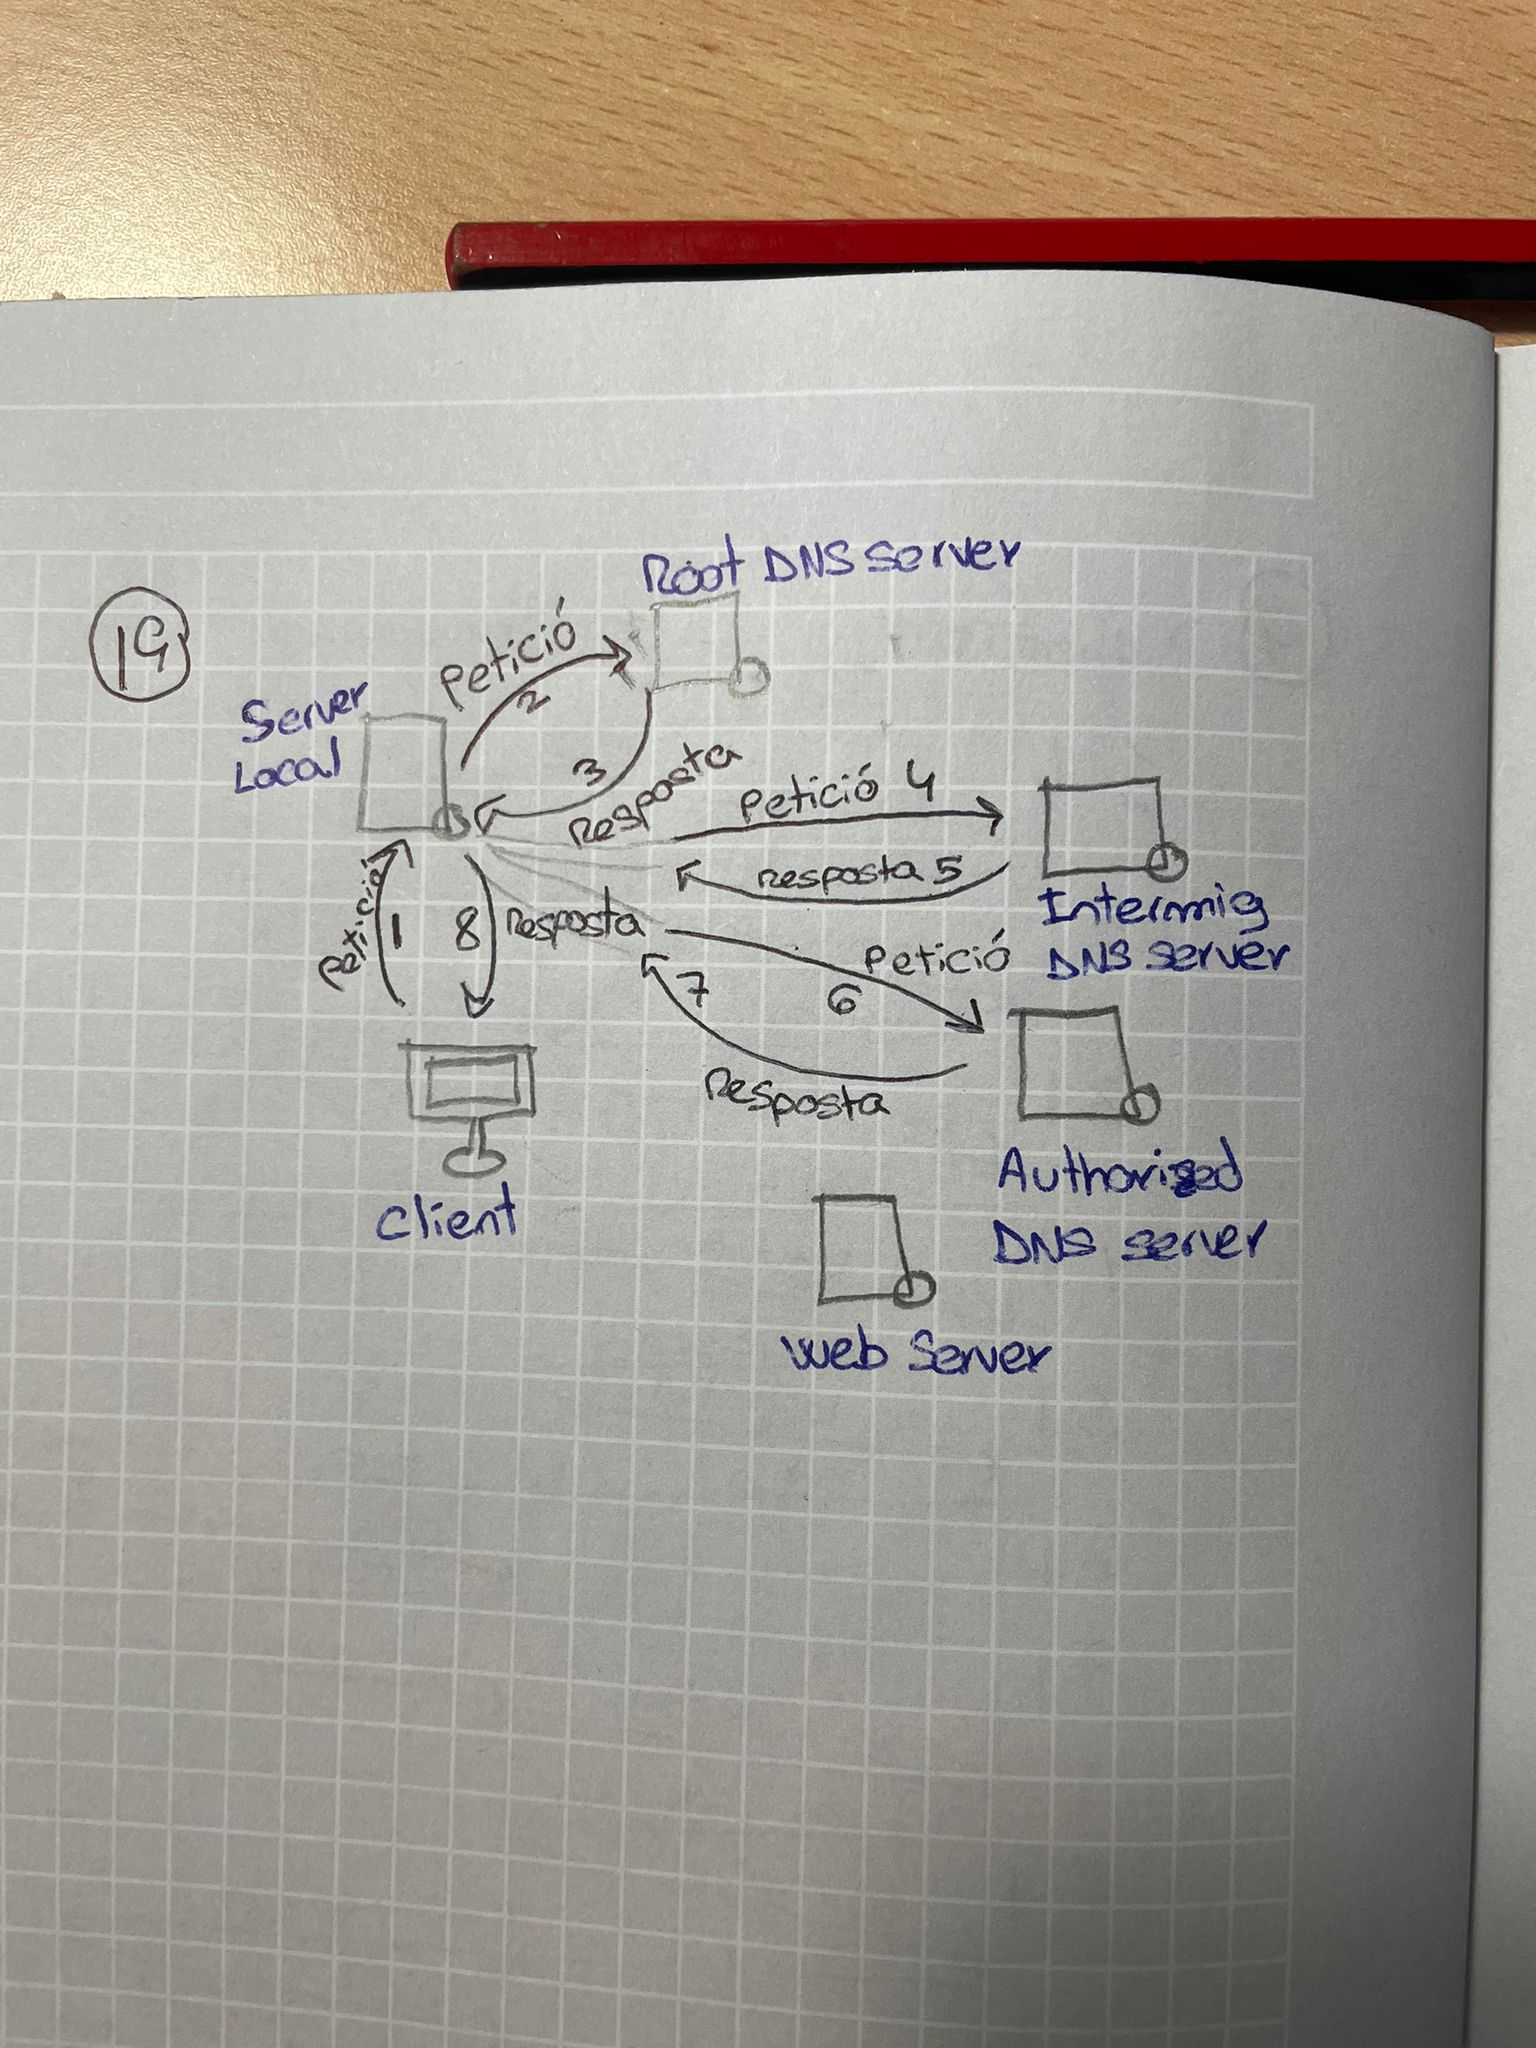 19
Root DNS server
Petició
2
Server
Local
3
Resposta
Petició 4
Resposta 5
Intermig
DNS server
Petició
1
8
Resposta
Petició
6
7
Resposta
Client
Authorised
DNS server
Web Server